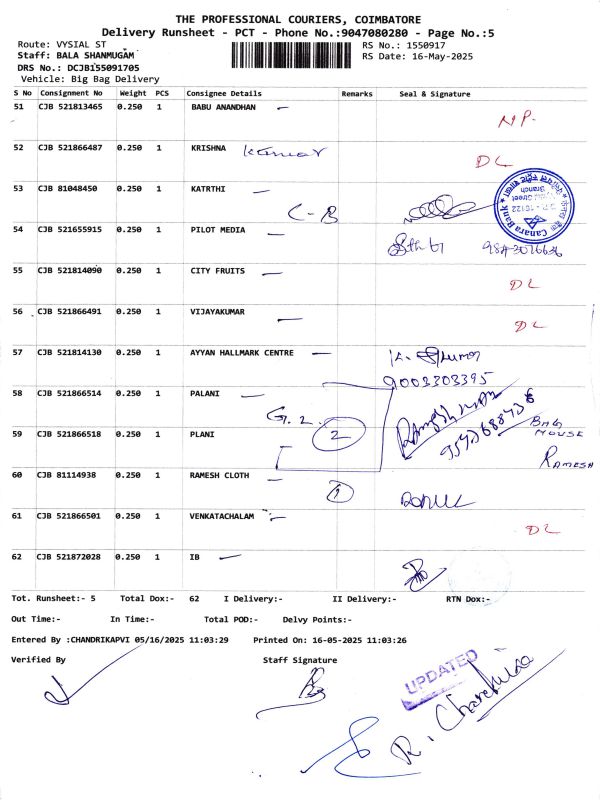 THE PROFESSIONAL COURIERS, COIMBATORE
Delivery Runsheet - PCT - Phone No.:9047080280 - Page No.:5
Route: VYSIAL ST
Staff: BALA SHANMUGAM
DRS No.: DCJB155091705
Vehicle: Big Bag Delivery
RS No.: 1550917
RS Date: 16-May-2025
S No Consignment No Weight PCS Consignee Details Remarks Seal & Signature
51 CJB 521813465 0.250 1 BABU ANANDHAN
NP.
52 CJB 521866487 0.250 1 KRISHNA Kumar
DL
53 CJB 81048450 0.250 1 KATRTHI
C-B
Canara Bank
Branch
54 CJB 521655915 0.250 1 PILOT MEDIA
55 CJB 521814090 0.250 1 CITY FRUITS
DL
56 CJB 521866491 0.250 1 VIJAYAKUMAR
DL
57 CJB 521814130 0.250 1 AYYAN HALLMARK CENTRE
9003303395
58 CJB 521866514 0.250 1 PALANI
G.2.
59 CJB 521866518 0.250 1 PLANI
2
BAG
MOUSE
RAMESH
60 CJB 81114938 0.250 1 RAMESH CLOTH
1
61 CJB 521866501 0.250 1 VENKATACHALAM
DL
62 CJB 521872028 0.250 1 IB
Tot. Runsheet:- 5 Total Dox:- 62 I Delivery:- II Delivery:- RTN Dox:-
Out Time:- In Time:- Total POD:- Delvy Points:-
Entered By :CHANDRIKAPVI 05/16/2025 11:03:29 Printed On: 16-05-2025 11:03:26
Verified By Staff Signature
UPDATED